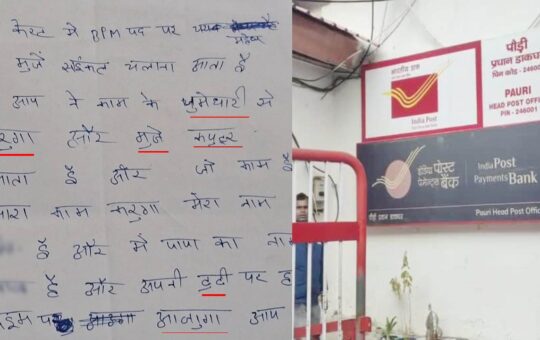 केस्ट मे BPM पद पर
मुजे सईकल चलाना माता है
आप ने काम के धुमेधारी से
रुगा और मुजे कपुटर
माता है और जो काम है
मारा काम करुगा मेरा नाम
है और मे पापा का ना
है और अपनी डुटी पर ह
इम प आजुगा आप
भारतीय डाक
India Post
पौड़ी
प्रधान डाकघर
पिन कोड - 246001
PAURI
HEAD POST OFFICE
PIN - 246001
इंडिया पोस्ट
पेमेन्ट्स बैंक
India Post
Payments Bank
पौड़ी प्रधान डाकघर
Pauri Head Post Office